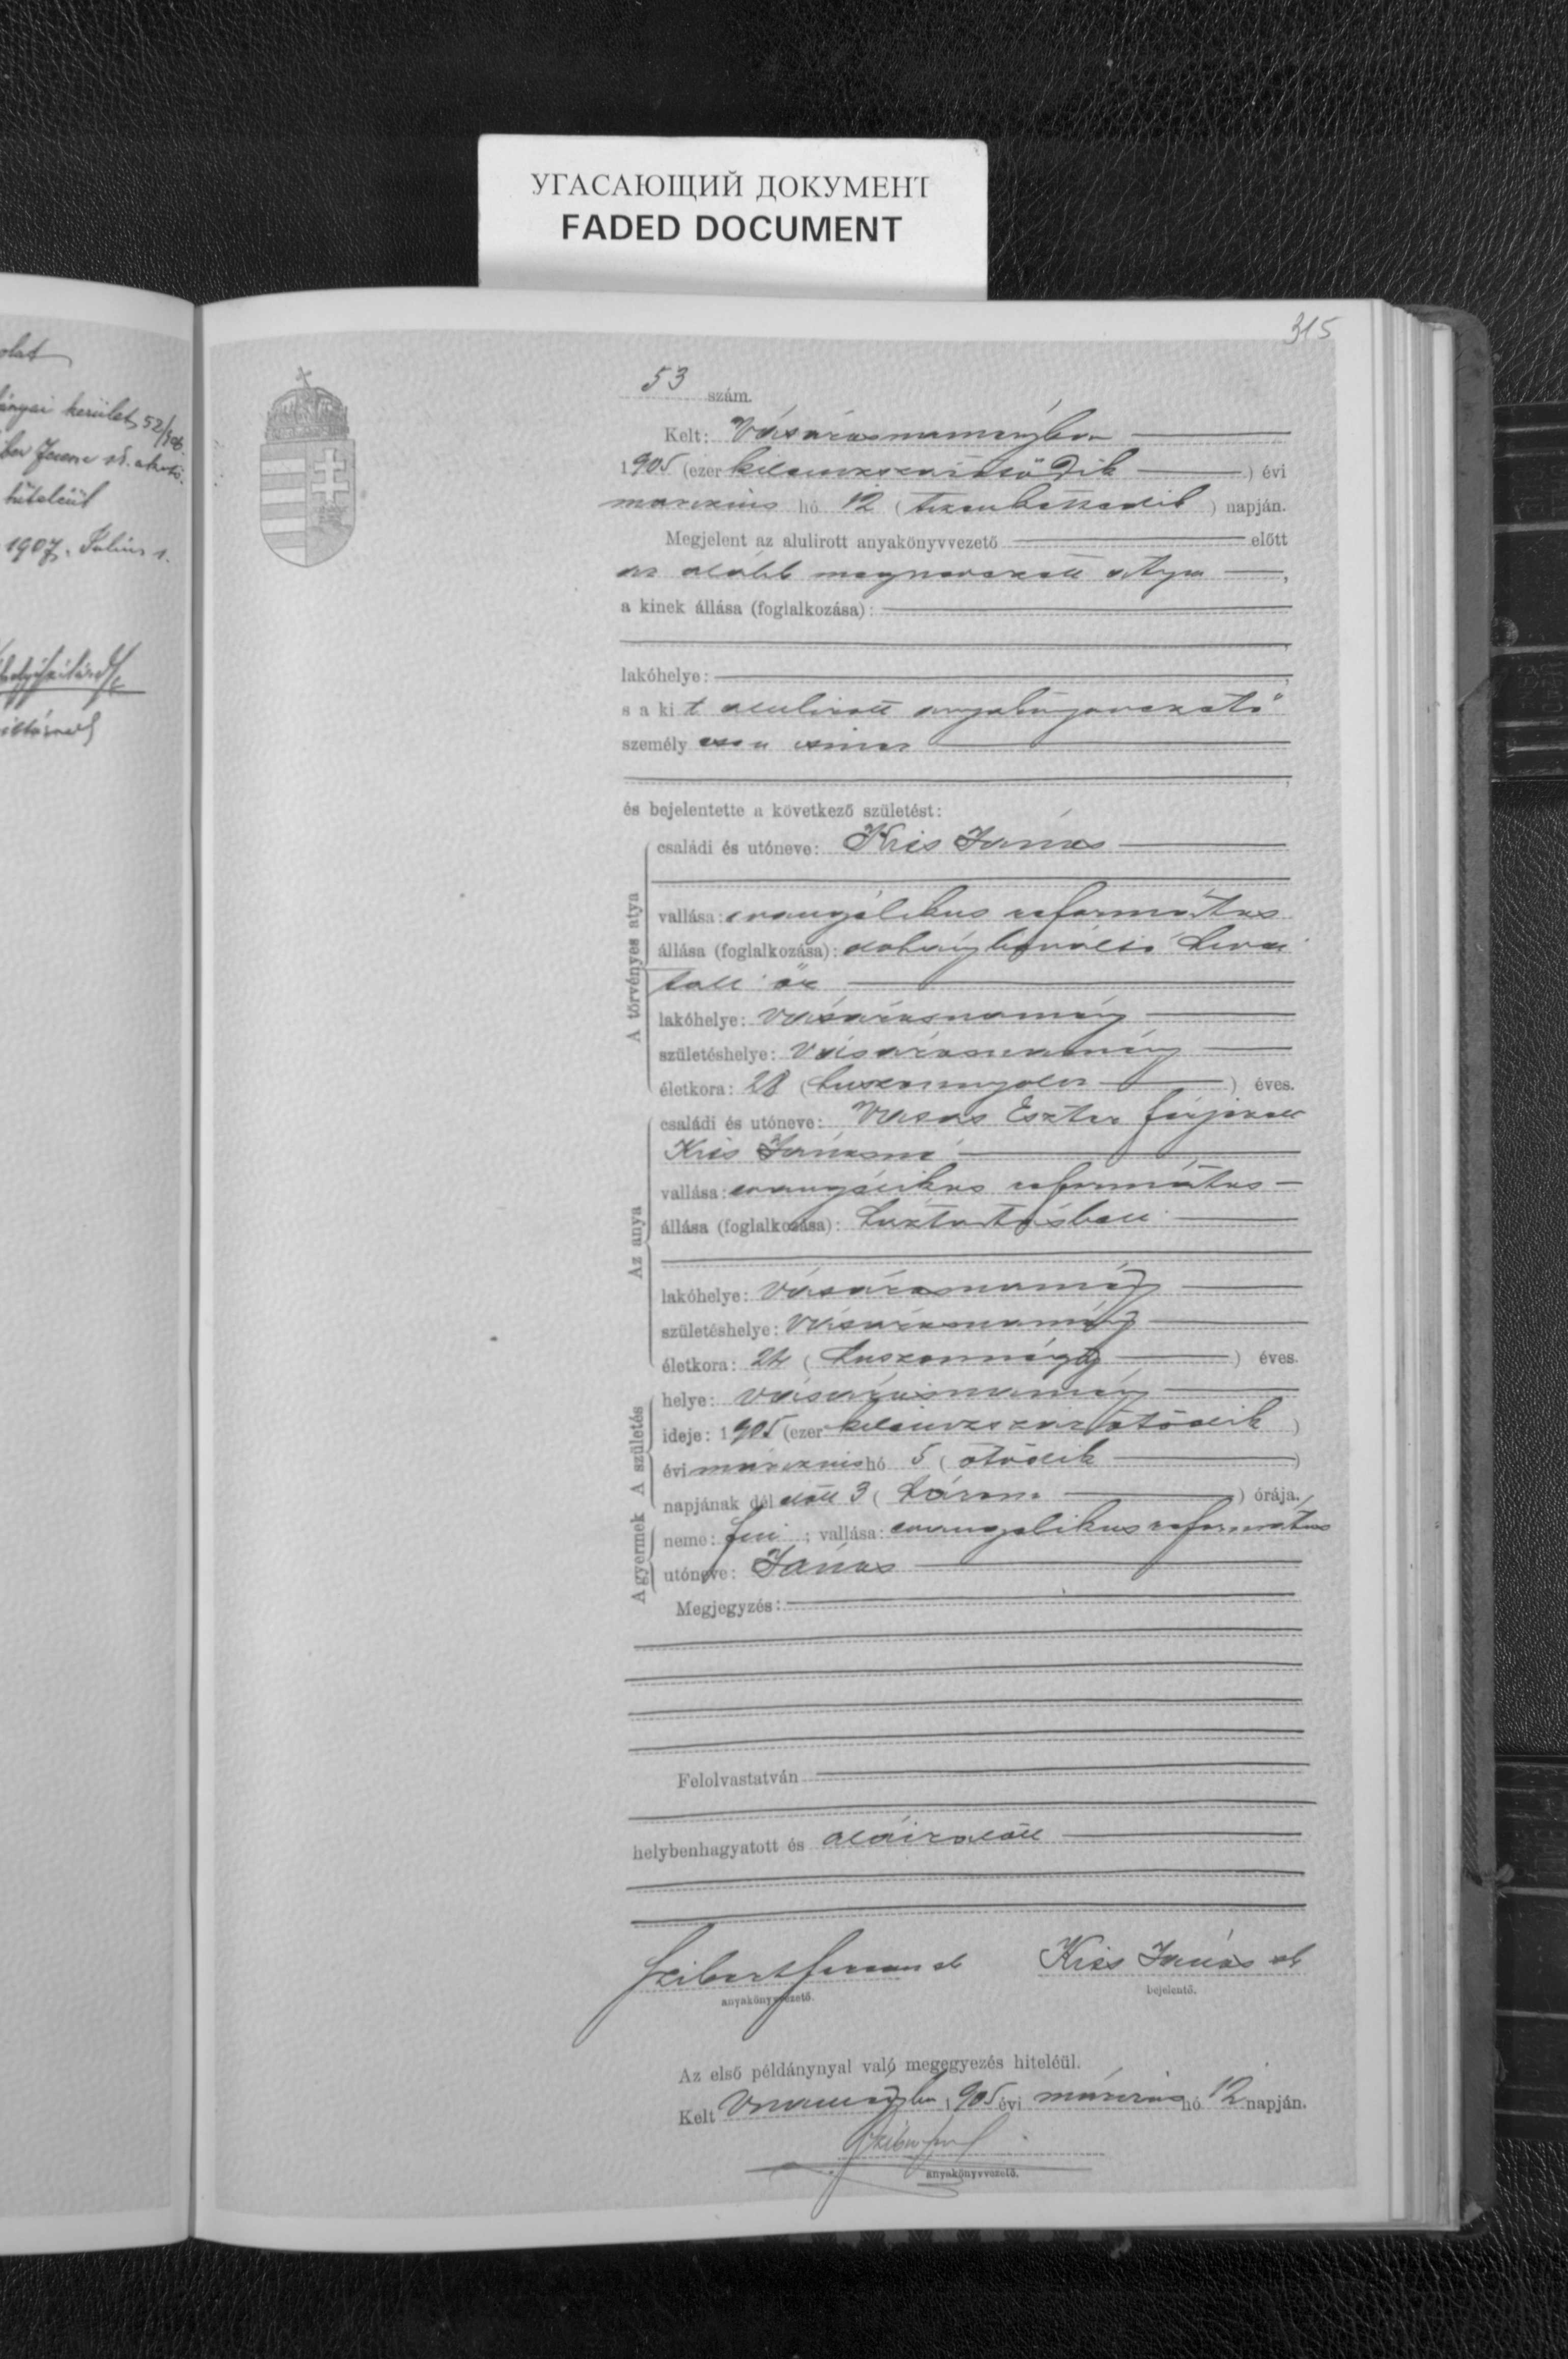 УГАСАЮЩИЙ ДОКУМЕНТ
FADED DOCUMENT
315
olat
kerület 52/906
hiteléül
1907. Július 1.
53 szám.
Kelt: Vásárosnaményban
1905 (ezer kilenczszázötödik) évi
marczius hó 12 (tizenkettedik) napján.
Megjelent az alulirott anyakönyvvezető előtt
az alább megnevezett atya,
a kinek állása (foglalkozása):
lakóhelye:
s a kit alulirott anyakönyvvezető
személyesen ismer
és bejelentette a következő születést:
A törvényes atya
családi és utóneve: Kiss János
vallása: evangélikus református
állása (foglalkozása): dohánybeváltó hiva
tali őr
lakóhelye: Vásárosnamény
születéshelye: Vásárosnamény
életkora: 28 (huszonnyolcz) éves.
Az anya
családi és utóneve: Vasas Eszter férjezett
Kiss Jánosné
vallása: evangélikus református
állása (foglalkozása): háztartásbeli
lakóhelye: Vásárosnamény
születéshelye: Vásárosnamény
életkora: 24 (huszonnégy) éves.
A születés
helye: Vásárosnamény
ideje: 1905 (ezer kilenczszázötödik)
évi márczius hó 5 (ötödik)
napjának délelőtt 3 (három) órája.
A gyermek
neme: fiu; vallása: evangelikus református
utóneve: János
Megjegyzés:
Felolvastatván
helybenhagyatott és aláiratott
Kiss János sk
anyakönyvvezető.
bejelentő.
Az első példánynyal való megegyezés hiteléül.
Kelt Vnaményban 1905 évi márczius hó 12 napján.
anyakönyvvezető.